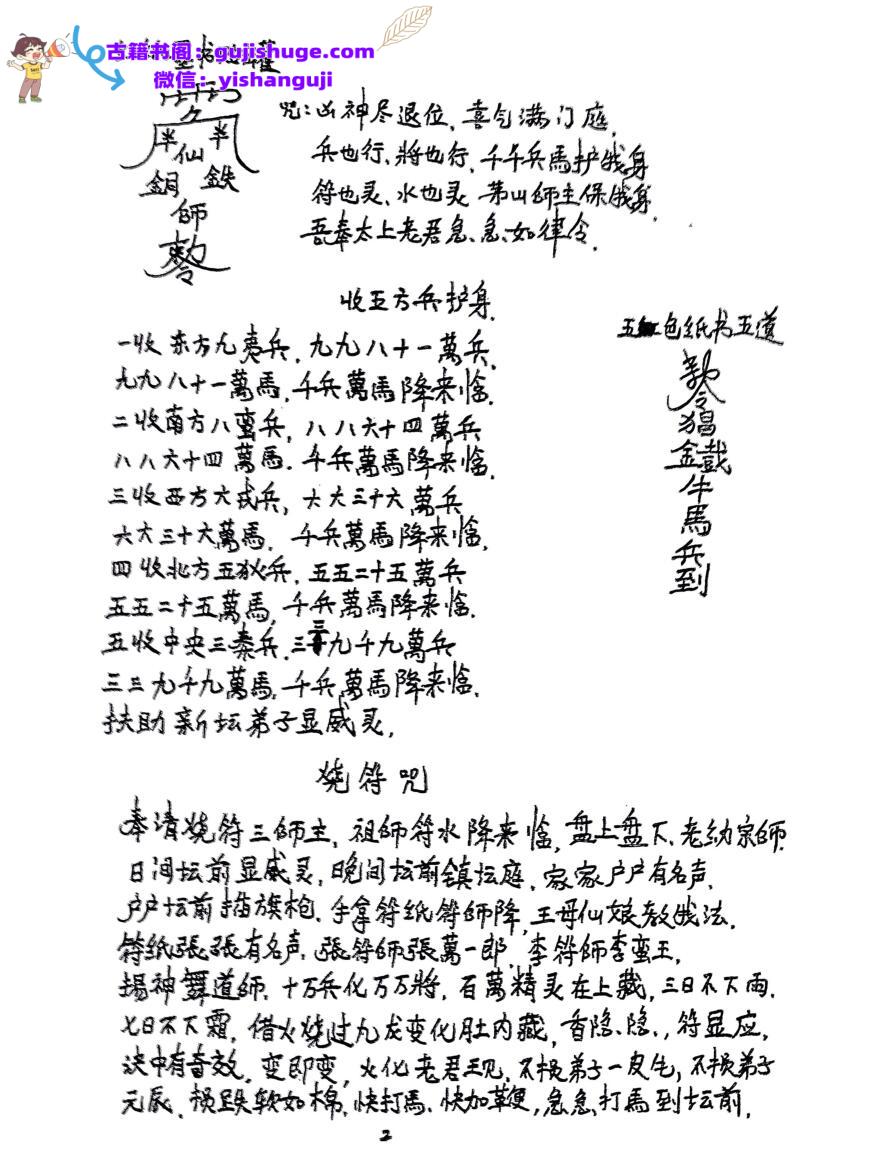 古籍书阁：gujishuge.com
微信：yishanguji
咒：凶神尽退位，喜气满门庭，
兵也行、將也行，千千兵馬护俄身
符也灵、水也灵 茅山師主保俄身，
吾奉太上老君急、急、如律令，
半 半
仙
銅 鉄
師
收五方兵护身，
一收东方九夷兵，九九八十一萬兵，
九九八十一萬馬，千兵萬馬降来临，
二收南方八蛮兵，八八六十四萬兵
八八六十四萬馬，千兵萬馬降来临，
三收西方六戎兵，六六三十六萬兵
六六三十六萬馬，千兵萬馬降来临，
四收北方五狄兵，五五二十五萬兵
五五二十五萬馬，千兵萬馬降来临，
五收中央三秦兵，三三九千九萬兵
三三九千九萬馬，千兵萬馬降来临，
扶助新坛弟子显威灵，
五 色纸书五道
猖
金
牛
馬
兵
到
烧符咒
奉请烧符三師主，祖師符水降来临，盘上盘下、老幼宗師，
日间坛前显威灵，晚间坛前鎮坛庭，家家户户有名声，
户户坛前插旗枪，手拿符纸符師降，王母仙娘教俄法，
符纸張張有名声，張符師張萬一郎，李符師李蛮王，
神舞道師，十万兵化万万將，百萬精灵在上裁，三日不下雨，
七日不下霜，借火烧过九龙变化肚内藏，香隐、隐、，符显应，
决中有音效，变即变，火化老君王见，不损弟子一皮毛，不损弟子
元辰，损跌软如棉，快打馬，快加鞭，急急、打馬到坛前，
2